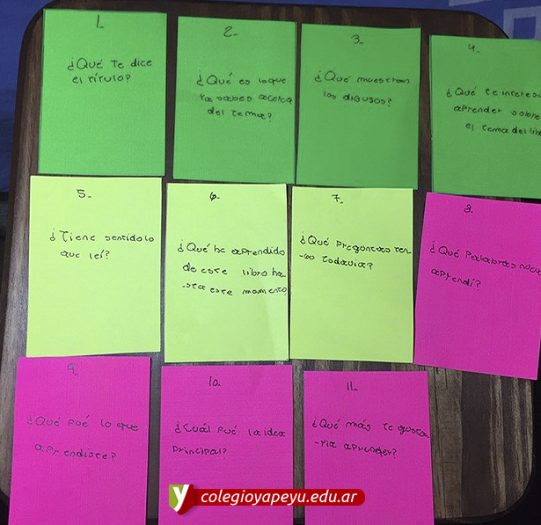 1.
¿Qué te dice
el título?
2-
¿Qué es lo que
ya sabes acerca
del tema?
3-
¿Qué muestran
los dibujos?
4-
¿Qué te interesa
aprender sobre
el tema del
5-
¿Tiene sentido lo
que leí?
6-
¿Qué he aprendido
de este libro ha
-sta este momento
7-
¿Qué preguntas ten-
-go todavía?
8.
¿Qué Palabras
aprendí?
9-
¿Qué fué lo que
aprendiste?
10.
¿Cuál fué la idea
principal?
11.
¿Qué más te gusta
-ría aprender?
y colegioyapeyu.edu.ar